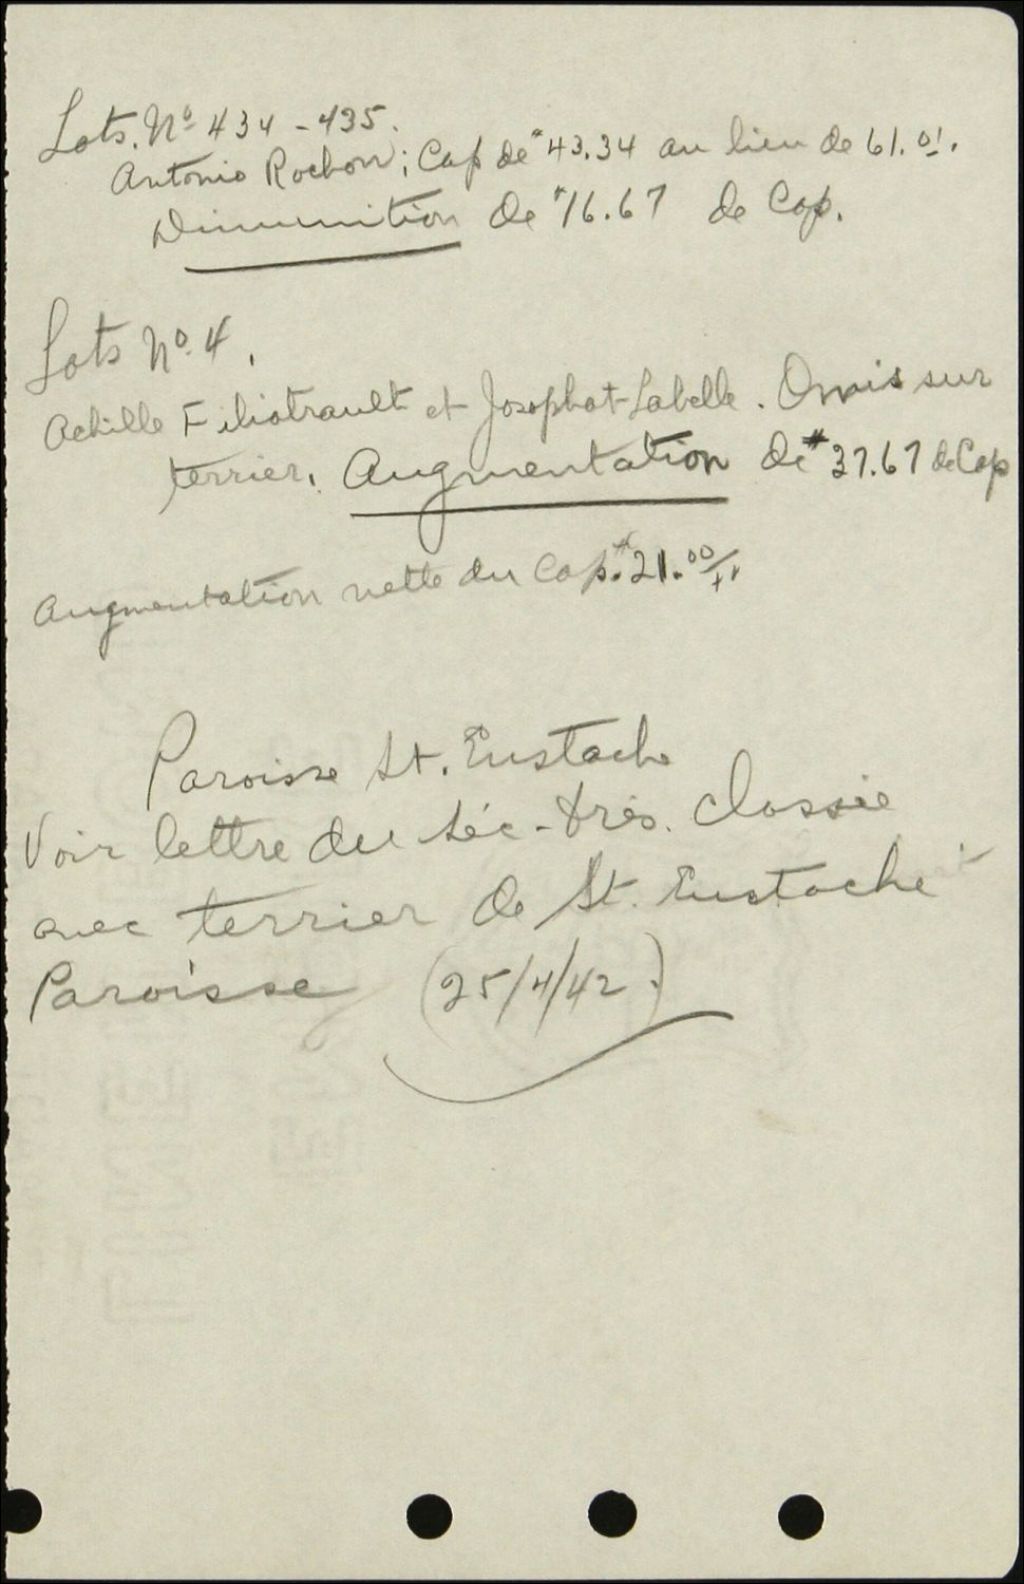 Lots. No 434 - 435.
Antonio Rochon; Cap de $43.34 au lieu de 61.01.
Diminution de $16.67 de Cap.
Lots No. 4.
Achille Filiatrault et Josaphat Labelle. Omis sur
terrier. Augmentation de $37.67 de Cap
Augmentation nette du Cap. $21.00
Paroisse St. Eustache
Voir lettre du séc-trés. classée
avec terrier de St. Eustache
Paroisse (25/4/42.)